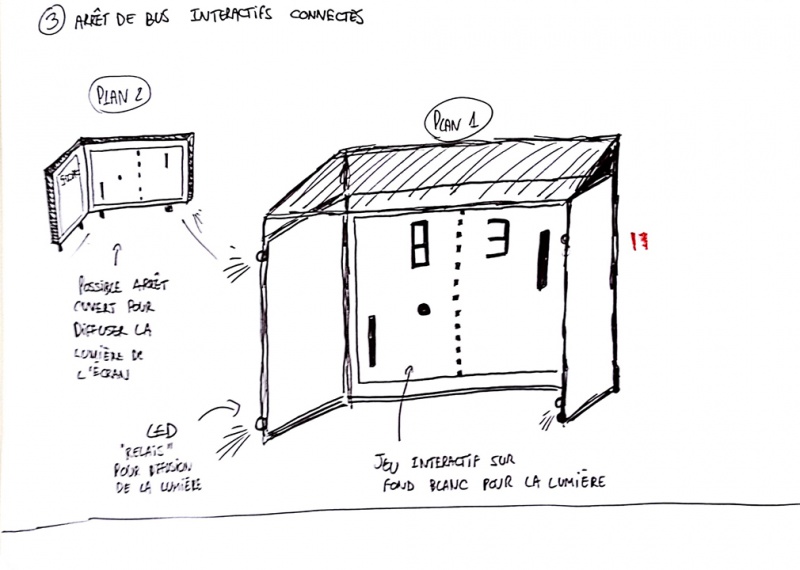 3 ARRÊT DE BUS INTERACTIFS CONNECTÉS
PLAN 2
SCORE
POSSIBLE ARRÊT
OUVERT POUR
DIFFUSER LA
LUMIÈRE DE
L'ÉCRAN
PLAN 1
8 3
LED
"RELAIS"
POUR DIFUSION
DE LA LUMIÈRE
JEU INTERACTIF SUR
FOND BLANC POUR LA LUMIÈRE